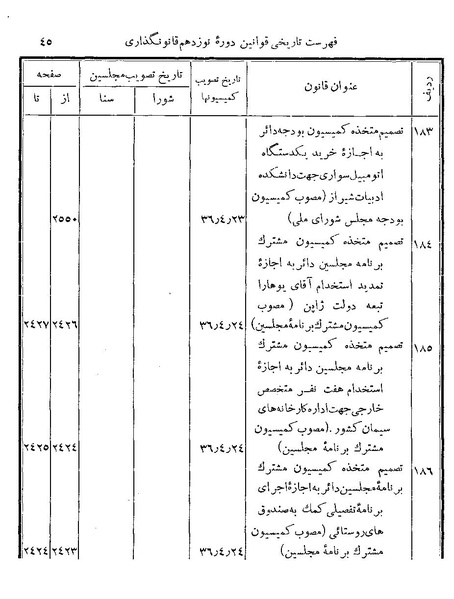 فهرست تاریخی قوانین دورهٔ نوزدهم قانونگذاری
٤٥
ردیف
عنوان قانون
تاریخ تصویب کمیسیونها
تاریخ تصویب مجلسین
شورا
سنا
صفحه
از
تا
١٨٣
تصمیم متخذه کمیسیون بودجه دائر
به اجازهٔ خرید یکدستگاه
اتومبیل سواری جهت دانشکده
ادبیات شیراز (مصوب کمیسیون
بودجه مجلس شورای ملی) ٣٦٫٤٫٢٣ ٢٥٥٠
١٨٤
تصمیم متخذه کمیسیون مشترك
برنامه مجلسین دائر به اجازهٔ
تمدید استخدام آقای یوهارا
تبعه دولت ژاپن (مصوب
کمیسیون مشترك برنامهٔ مجلسین) ٣٦٫٤٫٢٤ ٢٤٢٦ ٢٤٢٧
١٨٥
تصمیم متخذه کمیسیون مشترك
برنامه مجلسین دائر به اجازهٔ
استخدام هفت نفر متخصص
خارجی جهت اداره کارخانه‌های
سیمان کشور. (مصوب کمیسیون
مشترك برنامهٔ مجلسین) ٣٦٫٤٫٢٤ ٢٤٢٤ ٢٤٢٥
١٨٦
تصمیم متخذه کمیسیون مشترك
برنامهٔ مجلسین دائر به اجازهٔ اجرای
برنامهٔ تفصیلی کمك به صندوق
های روستائی (مصوب کمیسیون
مشترك برنامهٔ مجلسین) ٣٦٫٤٫٢٤ ٢٤٢٣ ٢٤٢٤